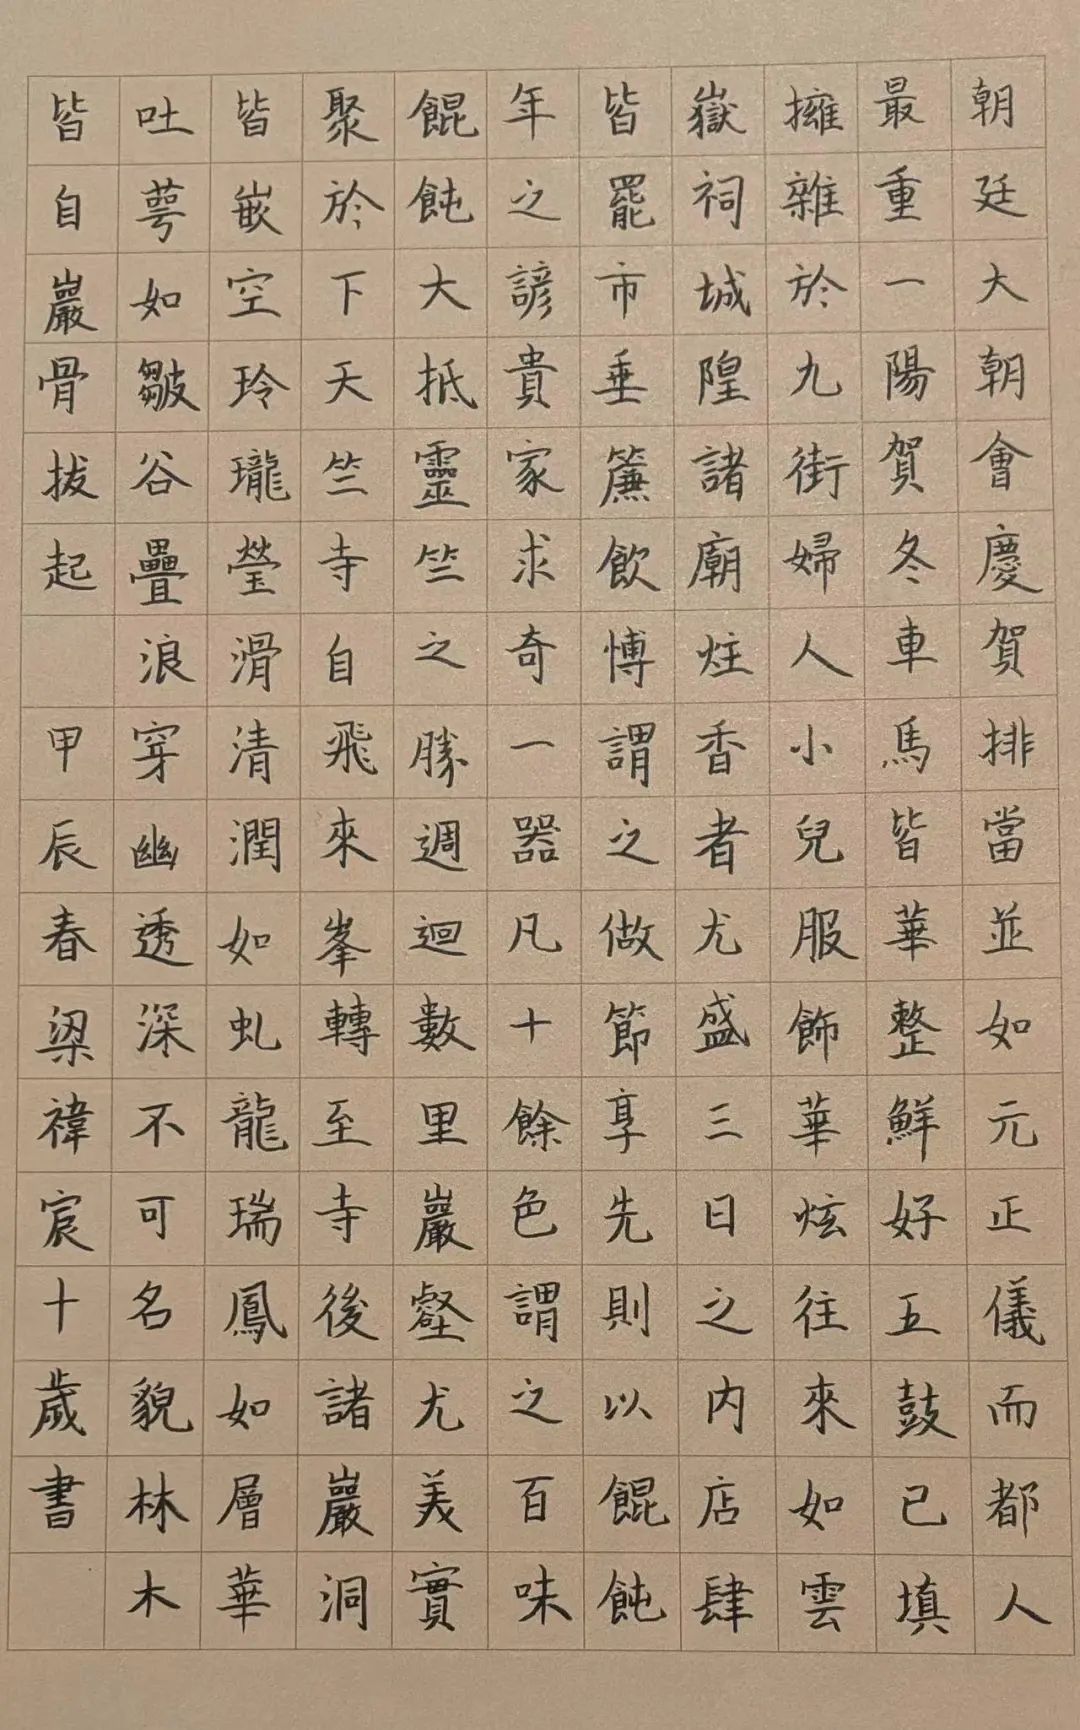 朝廷大朝會慶賀排當並如元正儀而都人
最重一陽賀冬車馬皆華整鮮好五鼓已填
擁雜於九街婦人小兒服飾華炫往來如雲
嶽祠城隍諸廟炷香者尤盛三日之内店肆
皆罷市垂簾飲博謂之做節享先則以餛飩
年之諺貴家求奇一器凡十餘色謂之百味
餛飩大抵靈竺之勝週迴數里巖壑尤美實
聚於下天竺寺自飛來峯轉至寺後諸巖洞
皆嵌空玲瓏瑩滑清潤如虬龍瑞鳳如層華
吐萼如皺谷疊浪穿幽透深不可名貌林木
皆自巖骨拔起 甲辰春梁禕宸十歲書